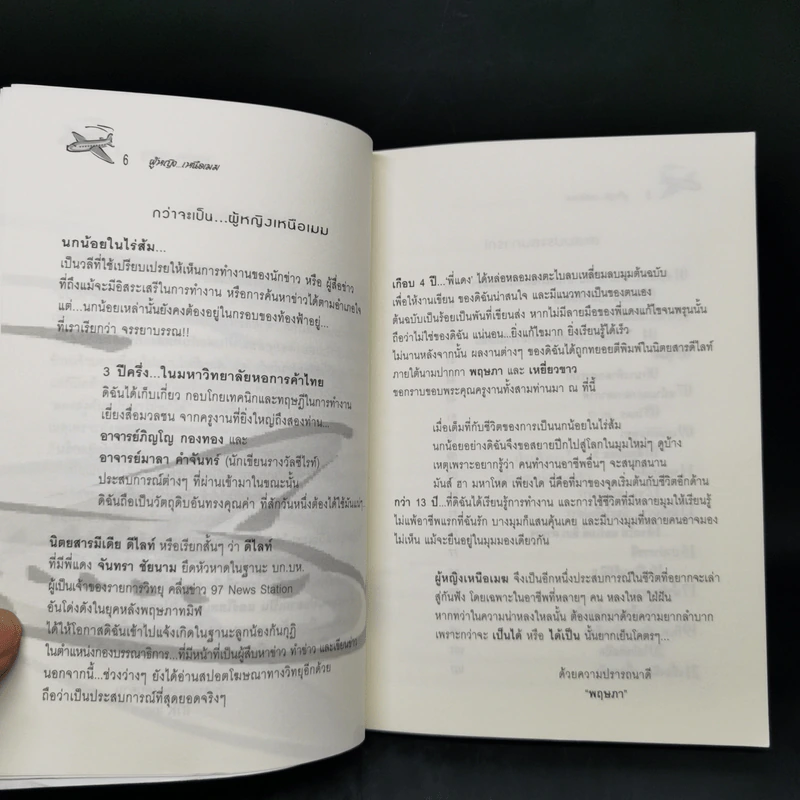 6 ผู้หญิง...เหนือเมฆ
กว่าจะเป็น...ผู้หญิงเหนือเมฆ
นกน้อยในไร่ส้ม...
เป็นวลีที่ใช้เปรียบเปรยให้เห็นการทำงานของนักข่าว หรือ ผู้สื่อข่าว
ที่ถึงแม้จะมีอิสระเสรีในการทำงาน หรือการค้นหาข่าวได้ตามอำเภอใจ
แต่...นกน้อยเหล่านั้นยังคงต้องอยู่ในกรอบของท้องฟ้าอยู่...
ที่เราเรียกว่า จรรยาบรรณ!!
3 ปีครึ่ง...ในมหาวิทยาลัยหอการค้าไทย
ดิฉันได้เก็บเกี่ยว กอบโกยเทคนิกและทฤษฎีในการทำงาน
เยี่ยงสื่อมวลชน จากครูงานที่ยิ่งใหญ่ถึงสองท่าน...
อาจารย์ภิญโญ กองทอง และ
อาจารย์มาลา คำจันทร์ (นักเขียนรางวัลซีไรท์)
ประสบการณ์ต่างๆ ที่ผ่านเข้ามาในขณะนั้น
ดิฉันถือเป็นวัตถุดิบอันทรงคุณค่า ที่สักวันหนึ่งต้องได้ใช้มันแน่ๆ
นิตยสารมีเดีย ดีไลท์ หรือเรียกสั้นๆ ว่า ดีไลท์
ที่มีพี่แดง จันทรา ชัยนาม ยึดหัวหาดในฐานะ บก.บห.
ผู้เป็นเจ้าของรายการวิทยุ คลื่นข่าว 97 News Station
อันโด่งดังในยุคหลังพฤษภาทมิฬ
ได้ให้โอกาสดิฉันเข้าไปแจ้งเกิดในฐานะลูกน้องก้นกุฏิ
ในตำแหน่งกองบรรณาธิการ...ที่มีหน้าที่เป็นผู้สืบหาข่าว ทำข่าว และเขียนข่าว
นอกจากนี้...ช่วงว่างๆ ยังได้อ่านสปอตโฆษณาทางวิทยุอีกด้วย
ถือว่าเป็นประสบการณ์ที่สุดยอดจริงๆ
เกือบ 4 ปี...'พี่แดง' ได้หล่อหลอมลงตะไบลบเหลี่ยมลบมุมต้นฉบับ
เพื่อให้งานเขียน ของดิฉันน่าสนใจ และมีแนวทางเป็นของตนเอง
ต้นฉบับเป็นร้อยเป็นพันที่เขียนส่ง หากไม่มีลายมือของพี่แดงแก้ไขจนพรุนนั้น
ถือว่าไม่ใช่ของดิฉัน แน่นอน...ยิ่งแก้ไขมาก ยิ่งเรียนรู้ได้เร็ว
ไม่นานหลังจากนั้น ผลงานต่างๆ ของดิฉันได้ถูกทยอยตีพิมพ์ในนิตยสารดีไลท์
ภายใต้นามปากกา พฤษภา และ เหยี่ยวขาว
ขอกราบขอบพระคุณครูงานทั้งสามท่านมา ณ ที่นี้
เมื่อเต็มที่กับชีวิตของการเป็นนกน้อยในไร่ส้ม
นกน้อยอย่างดิฉันจึงขอสยายปีกไปสู่โลกในมุมใหม่ๆ ดูบ้าง
เหตุเพราะอยากรู้ว่า คนทำงานอาชีพอื่นๆ จะสนุกสนาน
มันส์ ฮา มหาโหด เพียงใด นี่คือที่มาของจุดเริ่มต้นกับชีวิตอีกด้าน
กว่า 13 ปี...ที่ดิฉันได้เรียนรู้การทำงาน และการใช้ชีวิตที่มีหลายมุมให้เรียนรู้
ไม่แพ้อาชีพแรกที่ฉันรัก บางมุมก็แสนคุ้นเคย และมีบางมุมที่หลายคนอาจมอง
ไม่เห็น แม้จะยืนอยู่ในมุมมองเดียวกัน
ผู้หญิงเหนือเมฆ จึงเป็นอีกหนึ่งประสบการณ์ในชีวิตที่อยากจะเล่า
สู่กันฟัง โดยเฉพาะในอาชีพที่หลายๆ คน หลงใหล ใฝ่ฝัน
หากทว่าในความน่าหลงใหลนั้น ต้องแลกมาด้วยความยากลำบาก
เพราะกว่าจะ เป็นได้ หรือ ได้เป็น นั้นยากเย็นโคตรๆ...
ด้วยความปรารถนาดี
"พฤษภา"